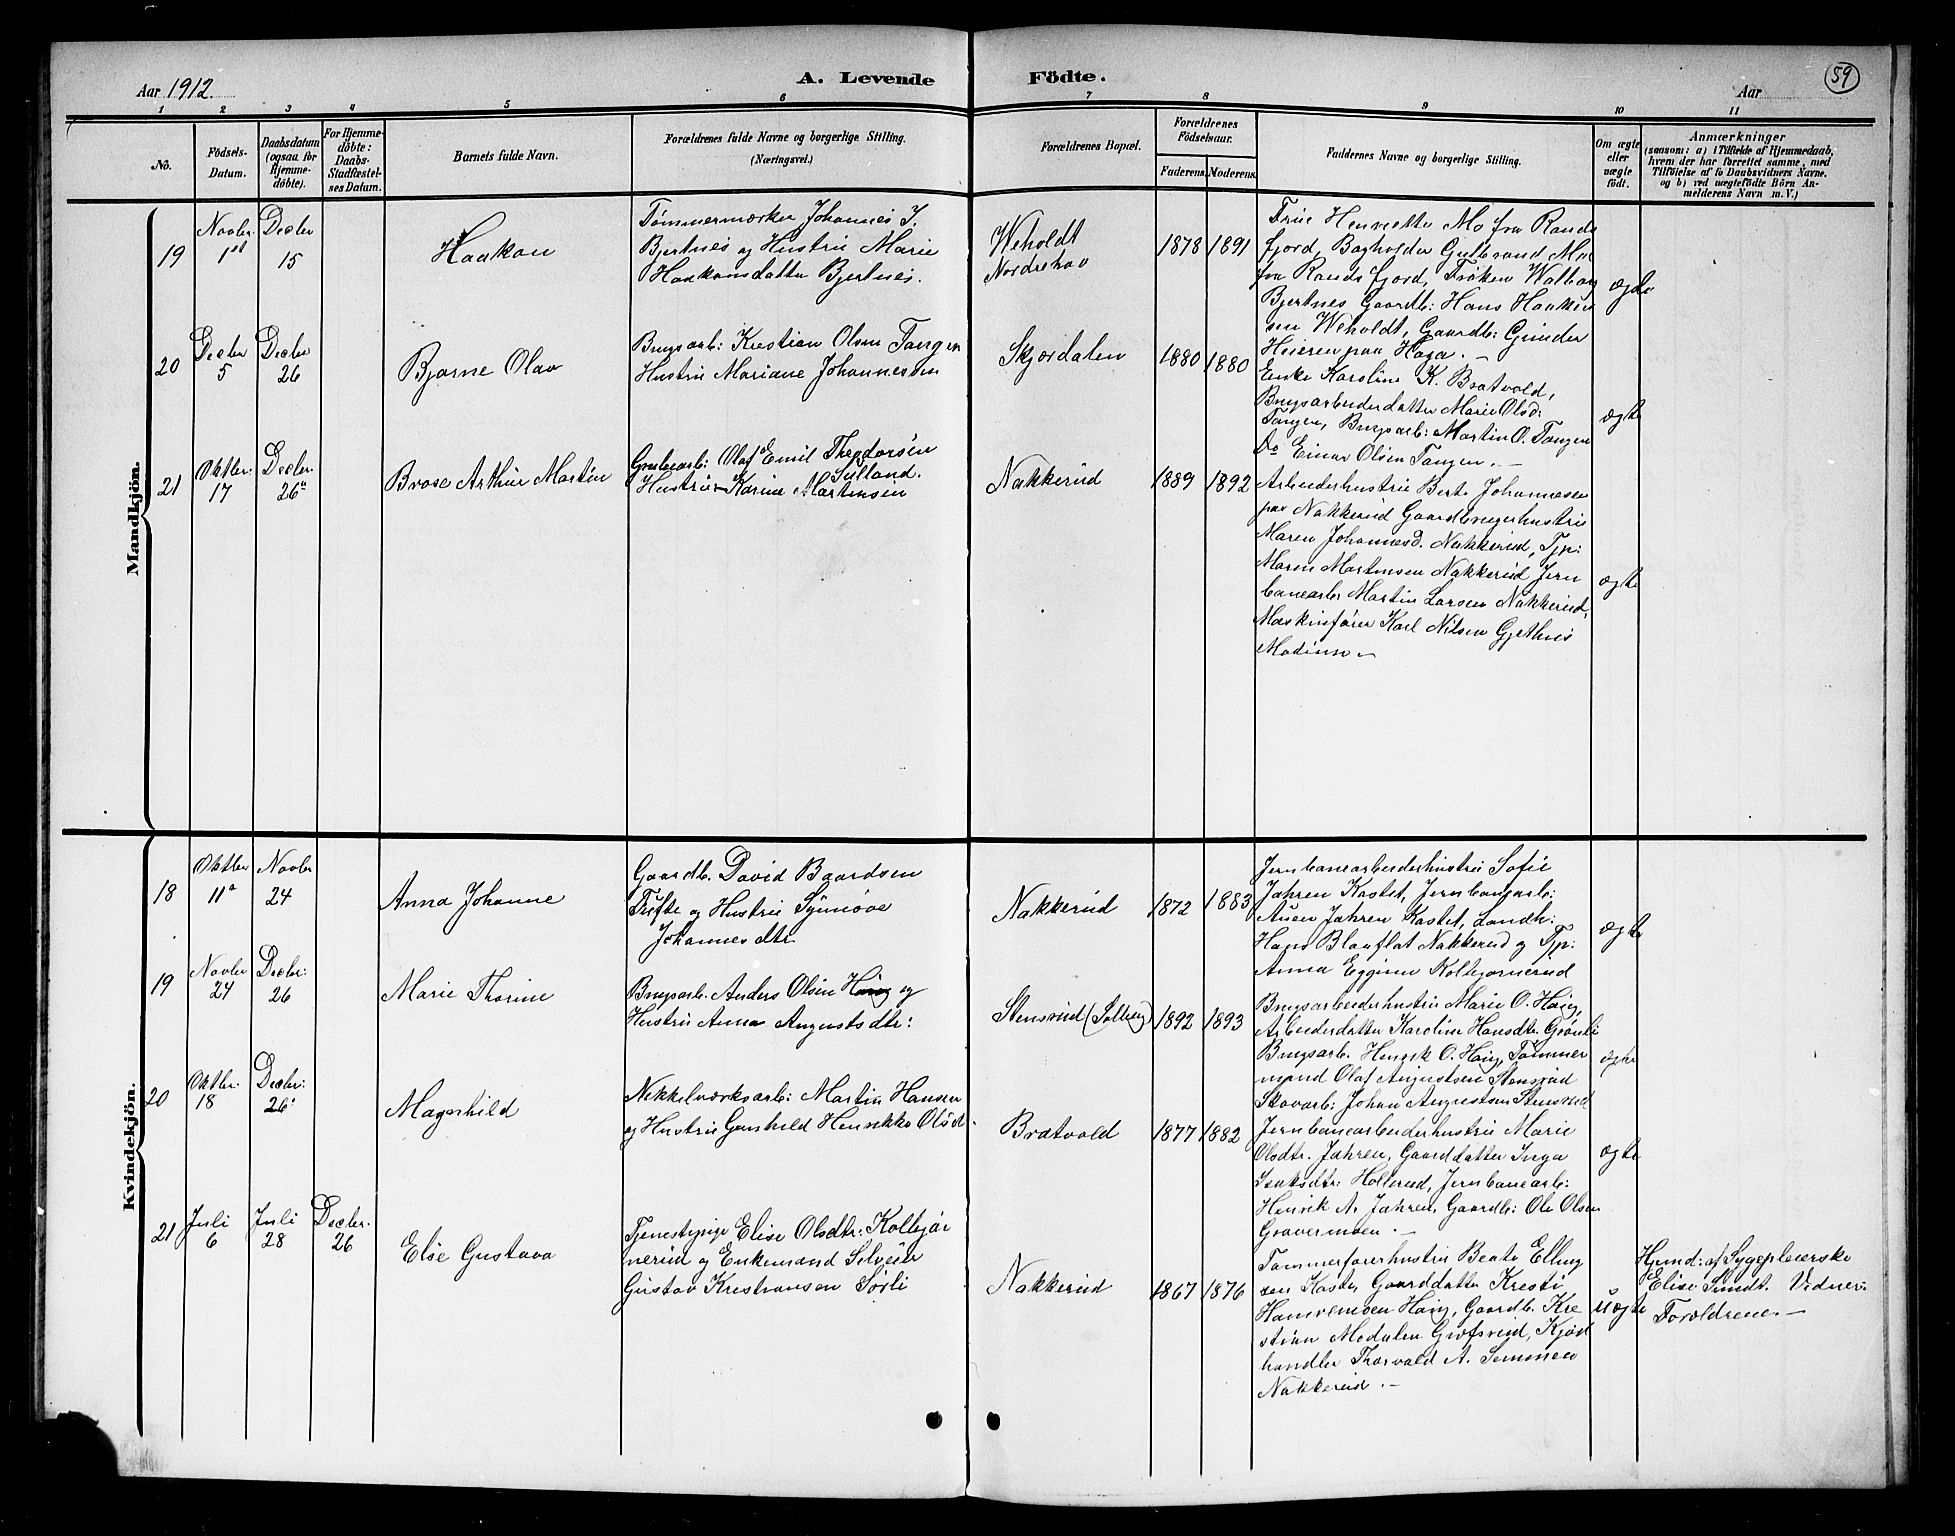 Aar 1912.
A. Levende Födte.
Aar
59
1 2 3 4 5 6 7 8 9 10 11
No.
Födsels-Datum.
Daabsdatum (ogsaa for Hjemme-døbte).
For Hjemme-døbte: Daabs-Stadfæstel-ses Datum.
Barnets fulde Navn.
Forældrenes fulde Navne og borgerlige Stilling. (Næringsvei.)
Forældrenes Bopæl.
Forældrenes Födselsaar.
Faderens. Moderens.
Faddernes Navne og borgerlige Stilling.
Om ægte eller uægte födt.
Anmærkninger
(saasom: a) i Tilfælde af Hjemmedaab, hvem der har forrettet samme, med Tilföielse af to Daabsvidners Navne. og b) ved uægtefödte Börn An-melderens Navn m. V.)
Mandkjön.
19
Novbr 1ste
Decbr 15
Haakon
Tømmermærker Johannes J.
Bjertnes og Hustru Marie
Haakonsdatter Bjertnes.
Weholdt
Nordrehov
1878 1891
Frue Henriette Mo fra Rands
fjord, Bogholder Gulbrand Mo
fra Randsfjord, Frøken Walborg
Bjertnes Gaardb: Hans Haaken
sen Weholdt, Gaardb: Gunder
Heieren paa Haga. –
ægte
20
Decbr 5
Decbr 26
Bjarne Olav
Brugsarb: Kristian Olsen Tangen
Hustru Mariane Johannessen
Skjørdalen
1880 1880
Enke Karoline K. Bratvold,
Brugsarbeiderdatter Marie Olsd:
Tangen, Brugsarb: Martin O. Tangen
Do Einar Olsen Tangen. –
ægte
21
Oktbr: 17
Decbr. 26
Arthur Martin
Grubearb: Olaf Emil Theodorsen
Sulland.
Hustru Karine Martinsen
Nakkerud
1889 1892
Arbeiderhustru Berte Johannesen
paa Nakkerud Gaardbrugerhustru
Maren Johannesd. Nakkerud, Tjp:
Maren Martinsen Nakkerud Jern
banearb: Martin Larsen Nakkerud,
Maskinfører Karl Nilsen Gjethus
Modum –
ægte
Kvindekjön.
18
Oktbr 11
Novbr 24
Anna Johanne
Gaardb. David Baardsen
Tufte og Hustru Synnøve
Johannesdtr
Nakkerud
1872 1883
Jernbanearbeiderhustru Sofie
Jahren Kastet, Jernbanearb:
Jahren Kastet, Landh:
Hans Blaaflat Nakkerud og Tjp:
Anna Kolbjørnerud
ægte
19
Novbr 24
Decbr: 26
Marie Thorine
Brugsarb. Anders Olsen Haug og
Hustru Anna Augustsdtr:
Stensrud (Solberg)
1892 1893
Brugsarbeiderhustru Marie O. Haug,
Arbeiderdatter Karoline Hansdtr. Grønli
Brugsarb. Henrik O. Haug, Tømmer
mand Olaf Augustsen Stensrud
Skovarb: Johan Augustsen Stensrud
ægte
20
Oktbr. 18
Decbr: 26
Magnhild
Nikkelværksarb: Martin Hansen
og Hustru Gunhild Henrikke Olsd.
Bratvold
1877 1882
Jernbanearbeiderhustru Marie
Olsdtr. Jahren, Gaarddatter Inga
Isaksdtr: Hollerud, Jernbanearb:
Henrik A. Jahren, Gaardb: Ole Olsen
Gravermoen. –
ægte
21
Juli 6
Juli 28
Decbr. 26
Else Gustava
Tjenestepige Elise Olsdtr: Kolbjør
nerud og Enkemand
Gustav Kristiansen Sørli
Nakkerud
1867 1876
Tømmerførerhustru Beate Elling
sen Kaste, Gaarddatter Kristi
Haug, Gaardb. Kri
stian Modalen Kjød
handler Thorvald A. Simensen
Nakkerud. –
uægte
Hjemd: af Sygepleierske
Elise Smidt. Vidner:
Forældrene. –